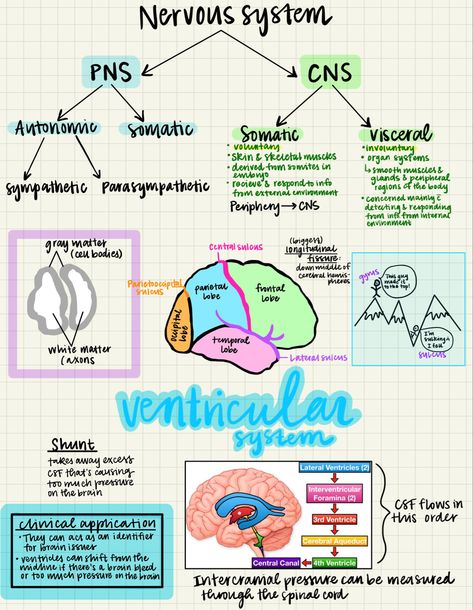 Nervous system
PNS
CNS
Autonomic
Somatic
Sympathetic
Parasympathetic
Somatic
• voluntary
• skin & skeletal muscles
• derived from somites in
embryo
• recieve & respond to info
from external environment
Periphery → CNS
visceral
• involuntary
• organ systems
↳ smooth muscles &
glands & peripheral
regions of the body
• concerned mainly c̄
detecting & responding
from info from internal
environment
gray matter
(cell bodies)
white matter
(axons
Central sulcus
Parietooccipital
sulcus
parietal
lobe
frontal
lobe
occipital
lobe
temporal
lobe
Lateral sulcus
(biggest)
longitudinal
fissure:
down middle of
cerebral hemis-
pheres
gyrus
This guy
made it
to the top!
I'm
sulking
I fell
sulcus
ventricular
system
Shunt
takes away excess
CSF that's causing
too much pressure
on the brain
clinical application
• They can act as an identifier
for brain issues
• ventricles can shift from the
midline if there's a brain bleed
or too much pressure on the brain
Lateral Ventricles (2)
Interventricular
Foramina (2)
3rd Ventricle
Cerebral Aqueduct
4th Ventricle
Central Canal
CSF flows in
this order
Intercranial pressure can be measured
through the spinal cord